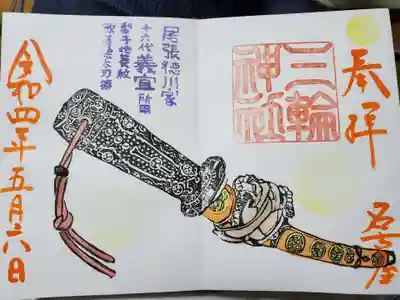 奉拝
名古屋
三輪
神社
尾張徳川家
十六代義宜所用
梨子地葵紋
散糸巻太刀拵
令和四年五月六日